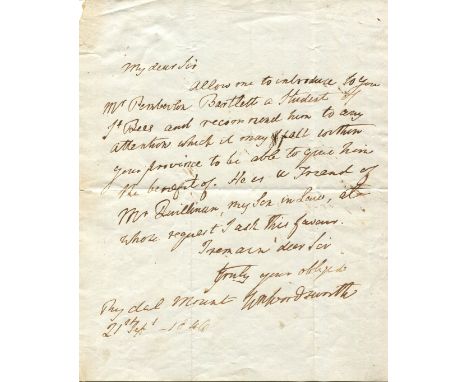 My dear Sir
Allow me to introduce to you
Mr Pemberton Bartlett a Student of
St Bees and recommend him to any
attention which it may fall within
your province to be able to give him
the benefit of. He is a Friend of
Mr Quillinan, my Son in Law, at
whose request I ask this favour.
I remain dear Sir
truly your obliged
Rydal Mount Wm Wordsworth
21st Septr - 1846